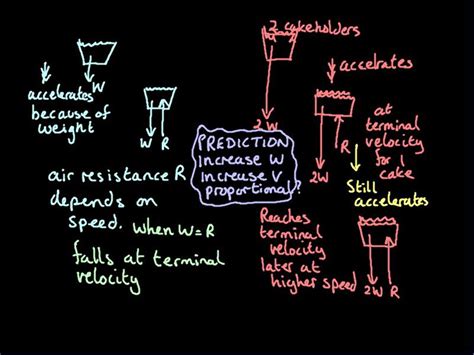 W
accelerates
because of
weight
W R
air resistance R
depends on
speed. when W=R
falls at terminal
velocity
PREDICTION
increase W
increase V
proportional?
2 cakeholders
2W
accelrates
R
2W
at
terminal
velocity
for 1
cake
Still
accelerates
Reaches
terminal
velocity
later at
higher speed
2W R